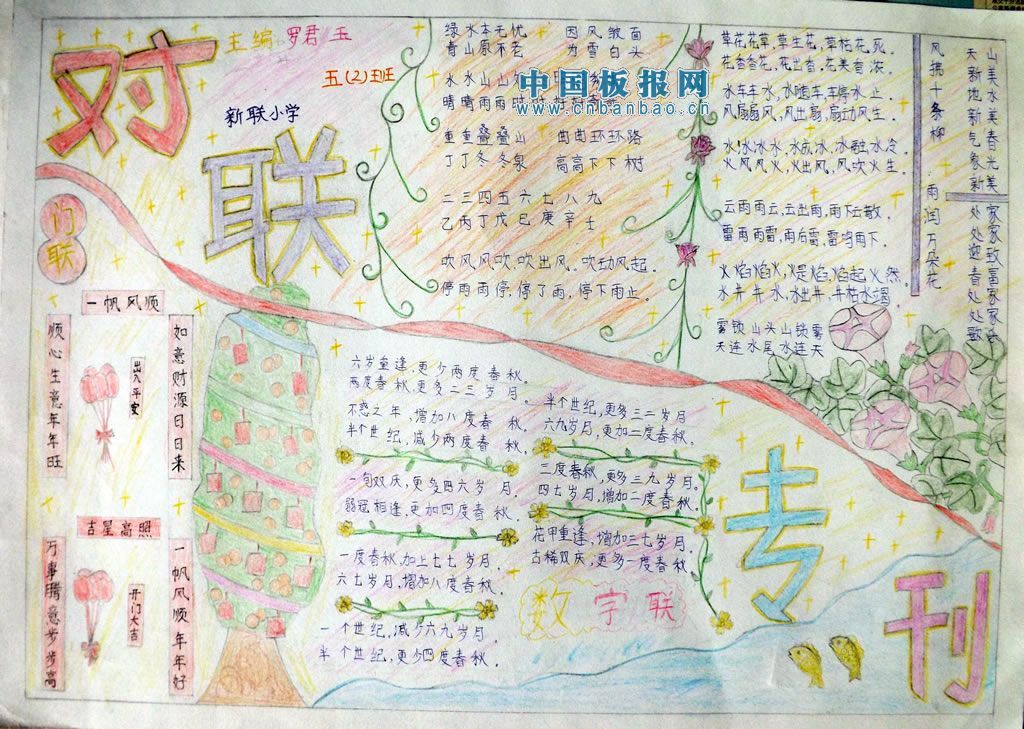 对联专刊
主编 罗君玉
五(2)班
新联小学
门联
一帆风顺
顺心生意年年旺
出入平安
如意财源日日来
吉星高照
万事腾意步步高
开门大吉
一帆风顺年年好
绿水本无忧 因风皱面
青山原不老 为雪白头
中国板报网
www.cnbanbao.cn
水水山山
晴晴雨雨时时
重重叠叠山 曲曲环环路
丁丁冬冬泉 高高下下树
二三四五六七八九
乙丙丁戊己庚辛壬
吹风风吹,吹出风。吹动风起。
停雨雨停,停了雨,停下雨止。
草花花草,草生花,草枯花死。
花香香花,花出香,花美香浓。
水车车水,水随车,车停水止。
风扇扇风,风出扇,扇动风生。
水冰冰水,水成冰,冰融水冷。
火风风火,火出风,风吹火生。
云雨雨云,云出雨,雨下云散。
雷雨雨雷,雨后雷,雷鸣雨下。
火焰焰火,火是焰,焰起火然,
水井井水,水出井,井枯水竭。
雾锁山头山锁雾
天连水尾水连天
风拂十条柳
雨润万朵花
天新地新气象新
山美水美春光美
处处迎春处处歌
家家致富家家乐
六岁重逢,更少两度春秋。
两度春秋,更多二三岁月。
不惑之年,增加八度春秋。
半个世纪,减少两度春秋。
一旬双庆,更多四六岁月。
弱冠相逢,更加四度春秋。
一度春秋,加上七七岁月。
六七岁月,增加八度春秋。
一个世纪,减少六九岁月。
半个世纪,更少四度春秋。
半个世纪,更多三二岁月。
六九岁月,更加二度春秋。
三度春秋,更多三九岁月。
四七岁月,增加二度春秋。
花甲重逢,增加三七岁月。
古稀双庆,更多一度春秋。
数字联